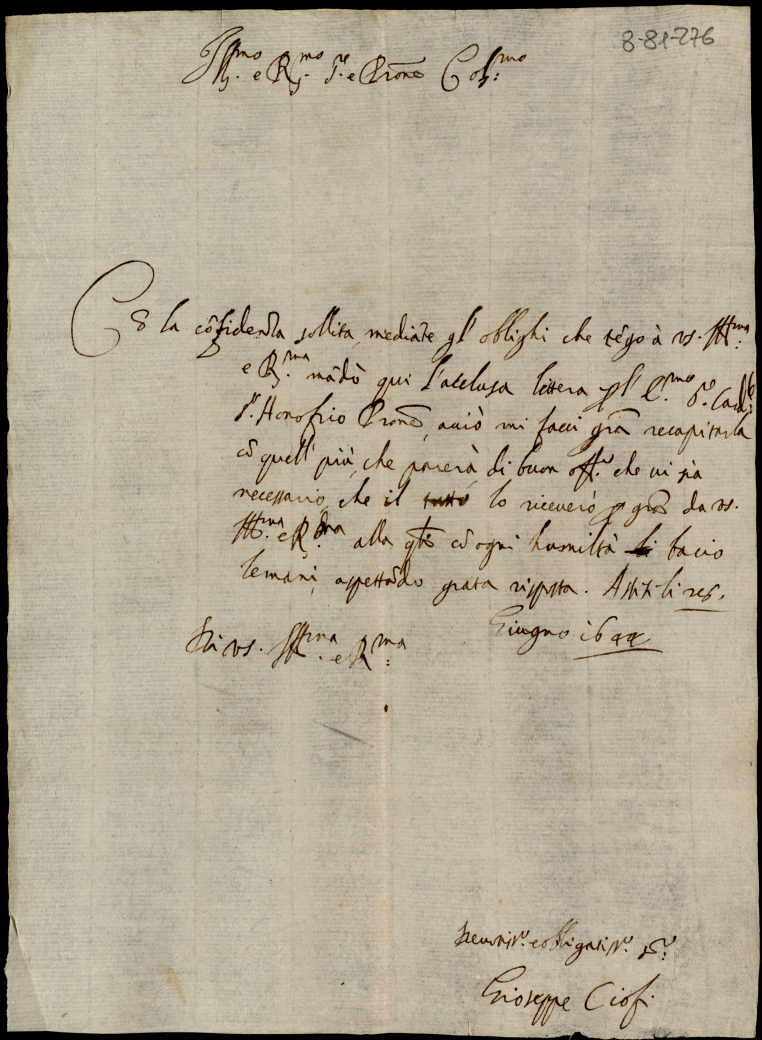 8-81-276
Ill.mo e R.mo S.re e Prone Col.mo
Cō la cōfidenza sollita, mediāte gl' oblighi che tēgo à vs. Ill.ma
e R.ma mādò qui l'acclusa littera p l' E.mo S.r Card.
S. Honofrio Prone, acciò mi facci grā recapitarla
cō quell' più, che parerà di buon off.o che vi sia
necessario, che il tutto lo riceverò p grā da vs.
Ill.ma e R.ma alla q̄le cō ogni humiltà li facio
le mani, aspettādo grata risposta. li
Giugno 1644
Di vs. Ill.ma e R.ma
e obligatiss.o s.re
Gioseppe Ciofi